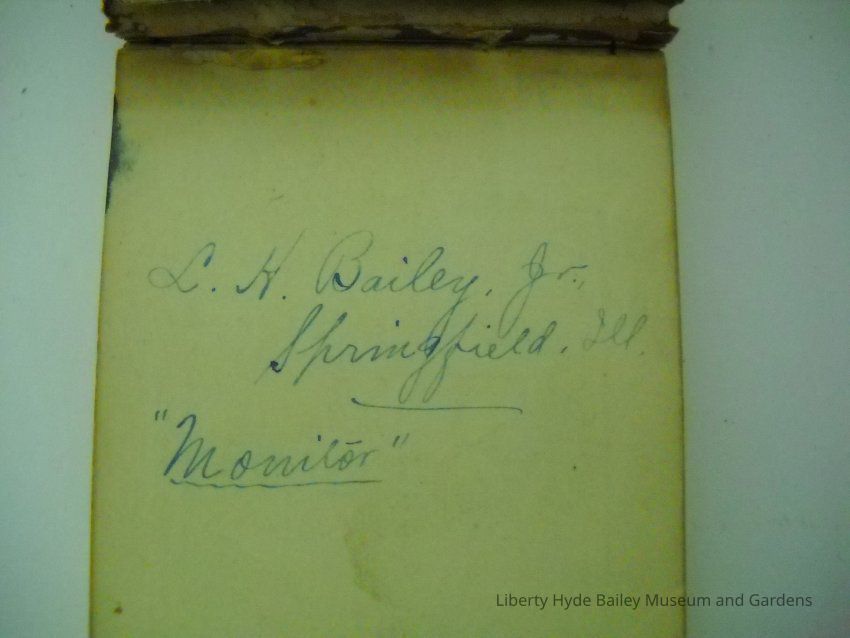 L. H. Bailey, Jr.,
Springfield, Ill.
"Monitor"
Liberty Hyde Bailey Museum and Gardens